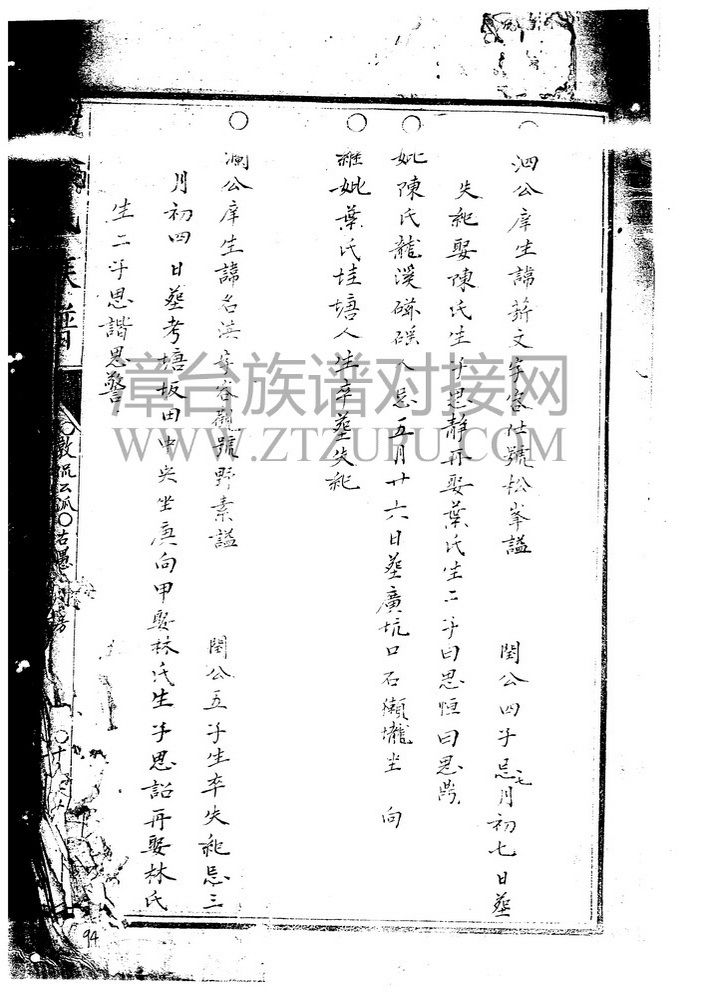 泗公庠生諱
文字宮仕號松峯謚
閏公四子忌
月初七日塟
失紀娶陳氏生子思靜再娶葉氏生二子曰思恒曰思
妣陳氏龍溪
人忌五月廿六日塟廣坑口石瀨壠坐 向
繼妣葉氏
塘人生卒塟失紀
瀾公庠生諱名淇字容觀號野素謚
閏公五子生卒失紀忌三
月初四日塟考塘坂田中央坐庚向甲娶林氏生子思詔再娶林氏
生二子思諧思警
族譜
94
漳台族谱对接网
WWW.ZTZUPU.COM